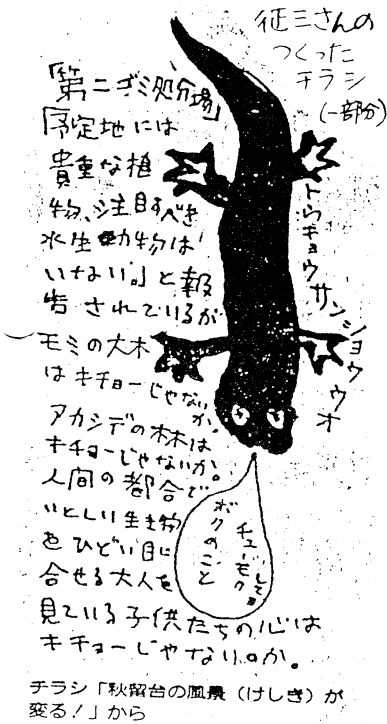 征三さんの
つくった
チラシ
(一部分)
「第二ゴミ処分場」
「予定地には
貴重な植
物、注目すべき
水生動物は
いない。」と報
告されているが
モミの大木
はキチョーじゃないか。
アカシデの林は
キチョーじゃないか。
人間の都合で
いとしい生き物
をひどい目に
合せる大人を
見ている子供たちの心は
キチョーじゃないのか。
トウキョウサンショウウオ
ボクのこと
チューモク
して
チラシ「秋留台の風景(けしき)が
変る!」から